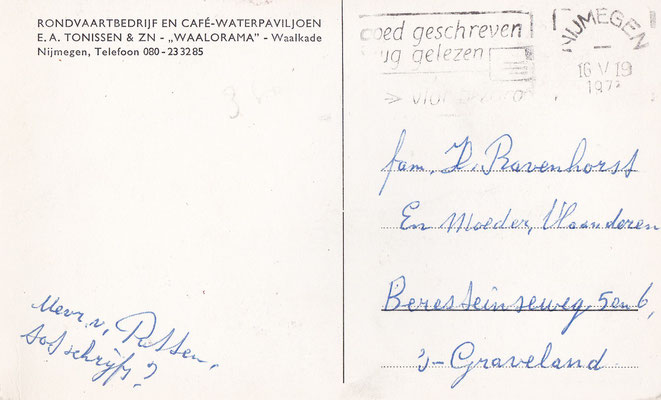 RONDVAARTBEDRIJF EN CAFÉ-WATERPAVILJOEN
E. A. TONISSEN & ZN - „WAALORAMA" - Waalkade
Nijmegen, Telefoon 080-233285
goed geschreven
vlug gelezen
NIJMEGEN
16 V 19
fam. D. Ravenhorst
En Moeder, Vlaanderen
Beresteinseweg 5 en 6,
's-Graveland
Mevr. v. Putten,
tot schrijfs?